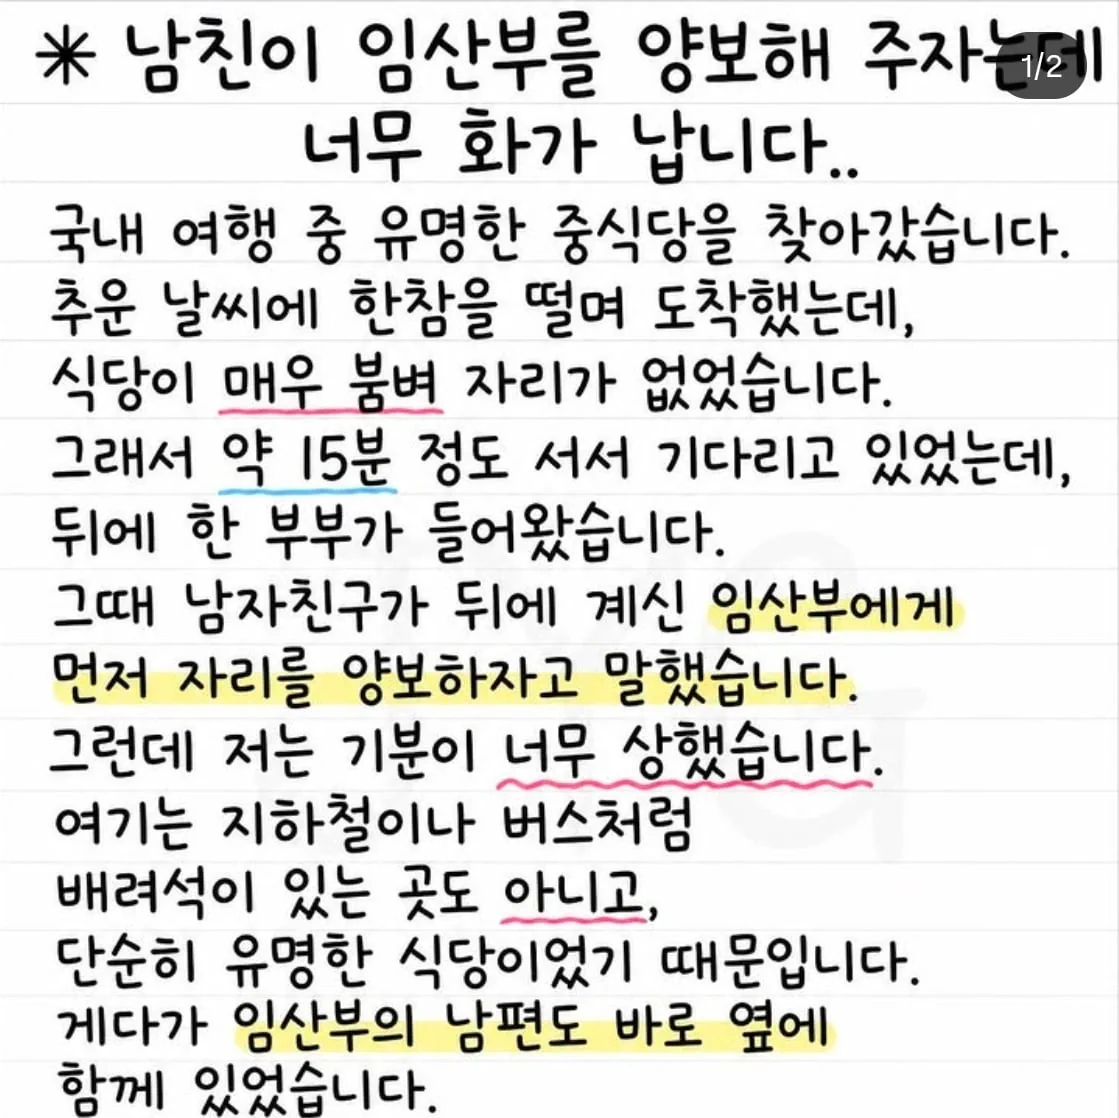 * 남친이 임산부를 양보해 주자는데
1/2
너무 화가 납니다..
국내 여행 중 유명한 중식당을 찾아갔습니다.
추운 날씨에 한참을 떨며 도착했는데,
식당이 매우 붐벼 자리가 없었습니다.
그래서 약 15분 정도 서서 기다리고 있었는데,
뒤에 한 부부가 들어왔습니다.
그때 남자친구가 뒤에 계신 임산부에게
먼저 자리를 양보하자고 말했습니다.
그런데 저는 기분이 너무 상했습니다.
여기는 지하철이나 버스처럼
배려석이 있는 곳도 아니고,
단순히 유명한 식당이었기 때문입니다.
게다가 임산부의 남편도 바로 옆에
함께 있었습니다.